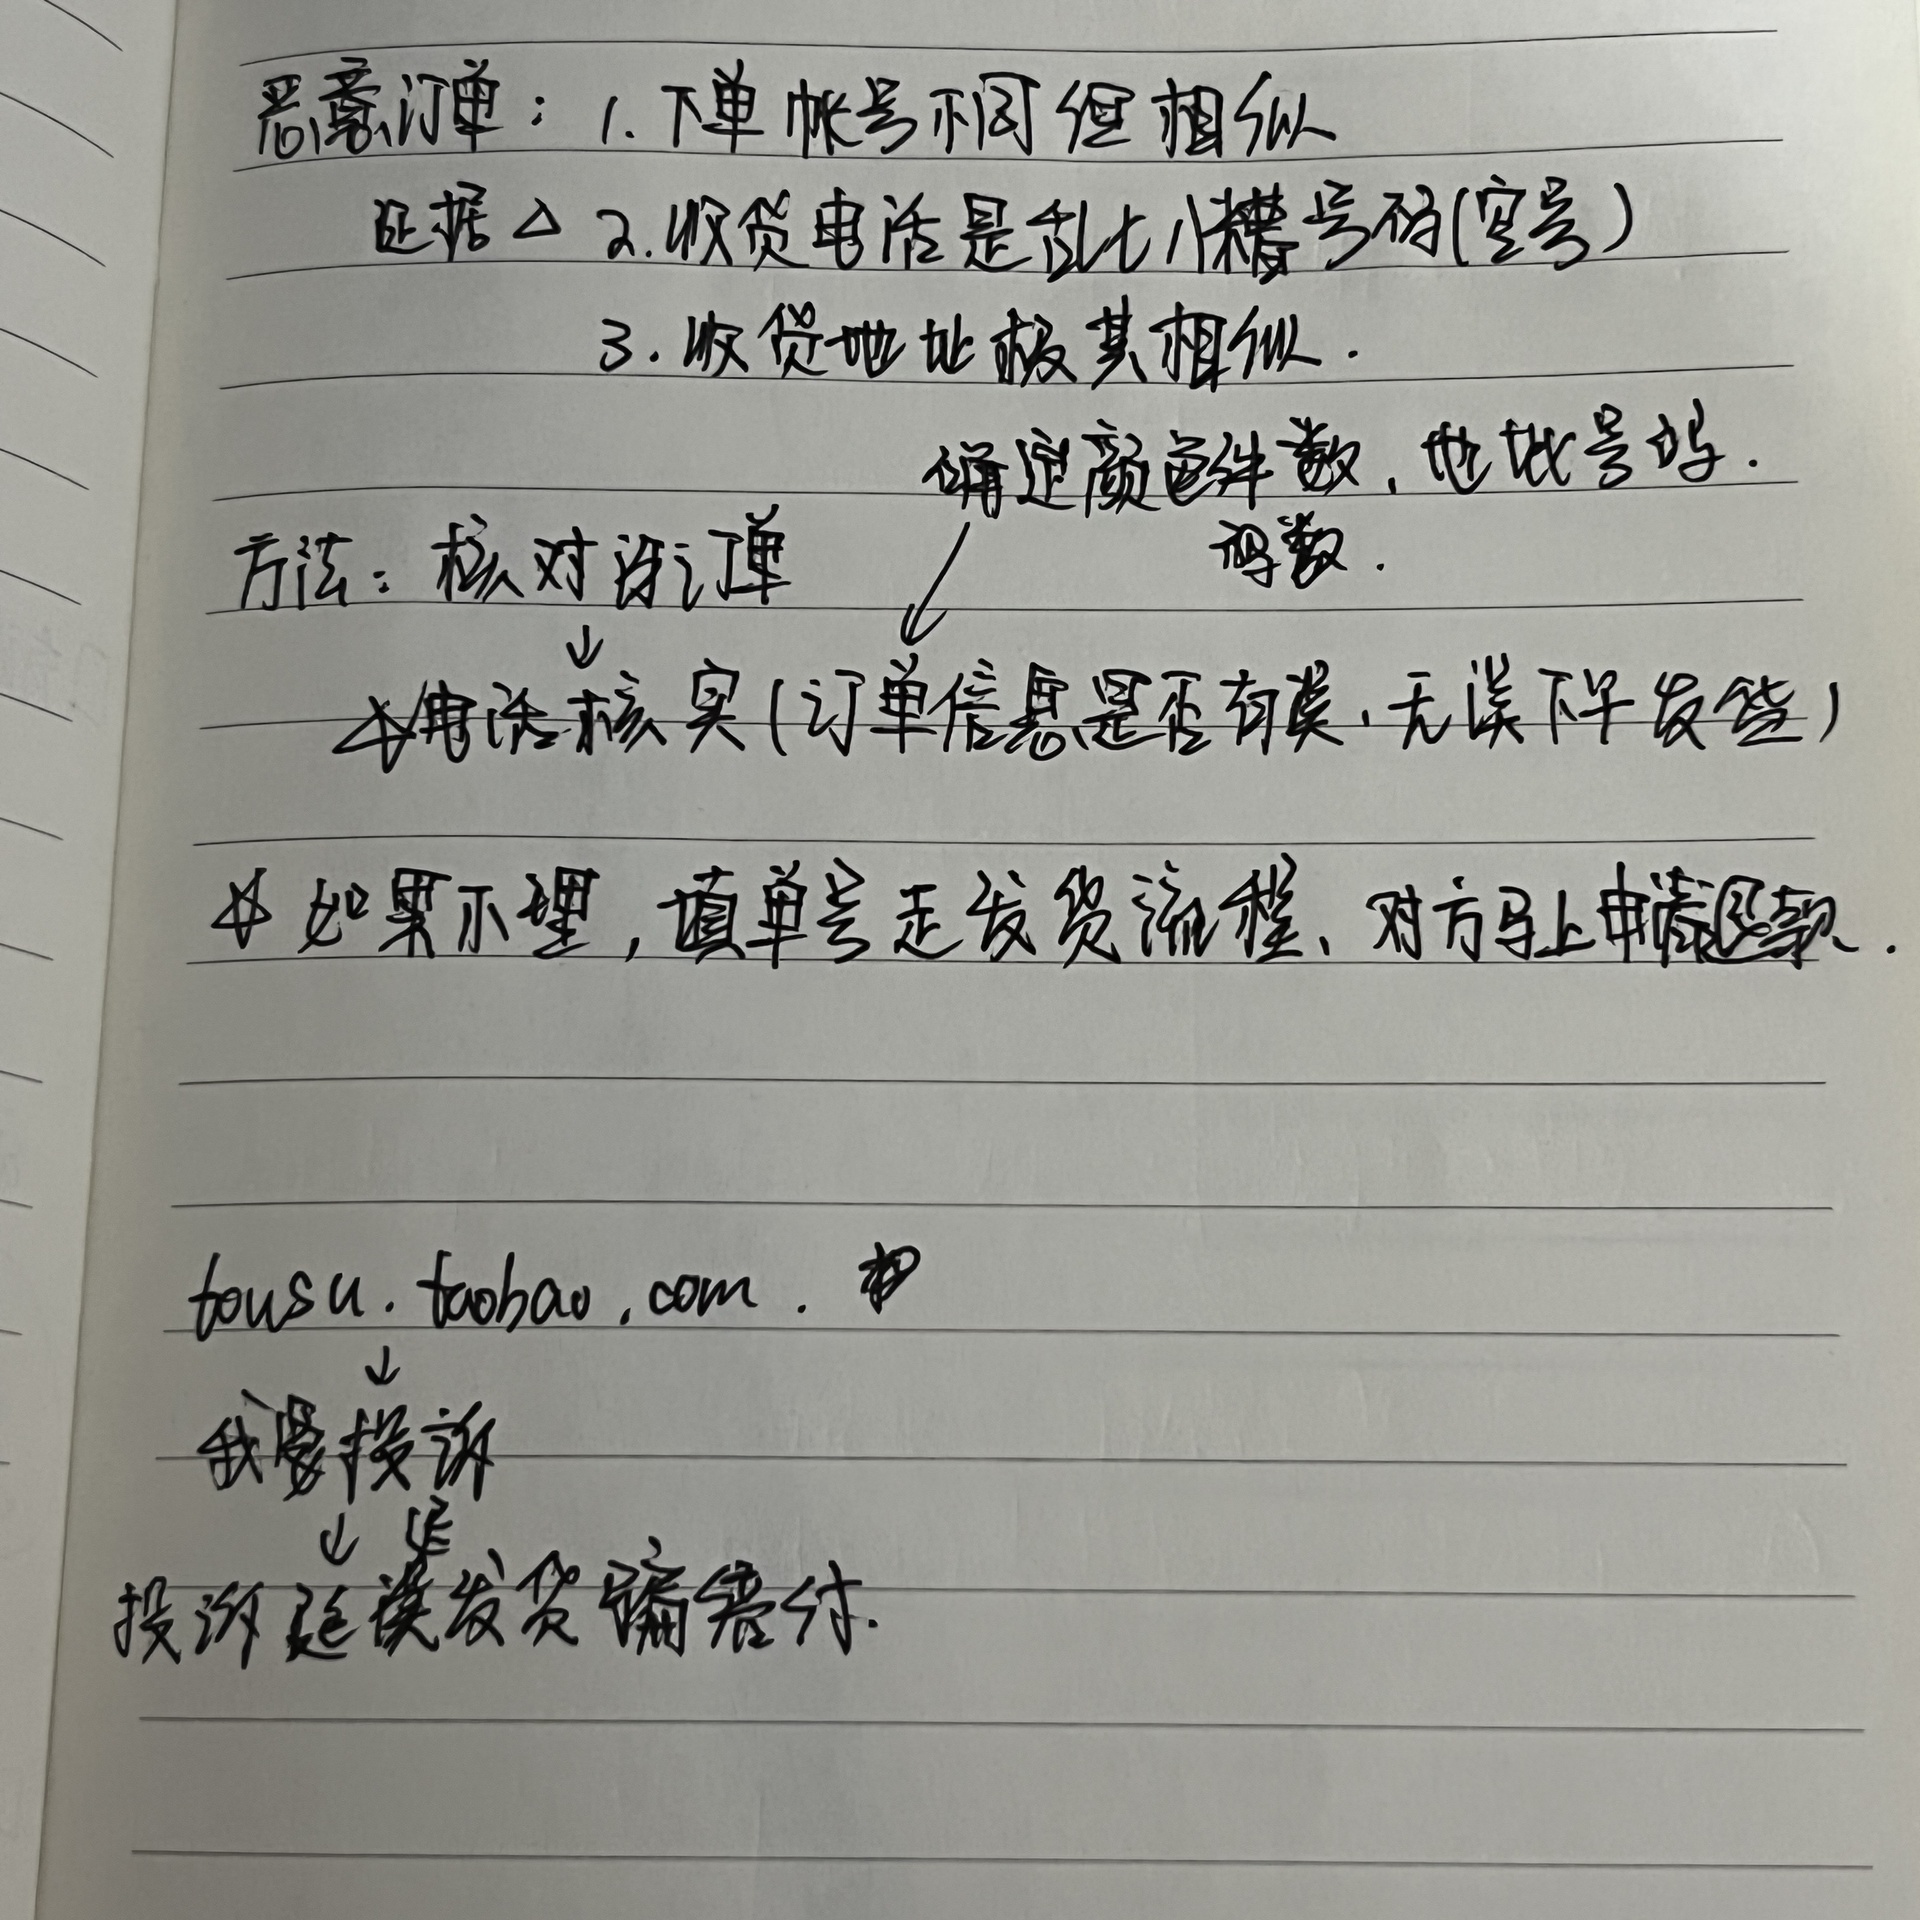 恶意订单：1.下单帐号不同但相似
证据△ 2.收货电话是乱七八糟号码(空号)
3.收货地址极其相似.
确定颜色件数，地址号码.
码数.
方法：核对该订单
↓
☆电话核实(订单信息是否有误，无误下午发货)
☆如果不理，填单号走发货流程、对方马上申请退款.
tousu.taobao.com.
↓
我要投诉
↓
投诉延误发货骗赔付.